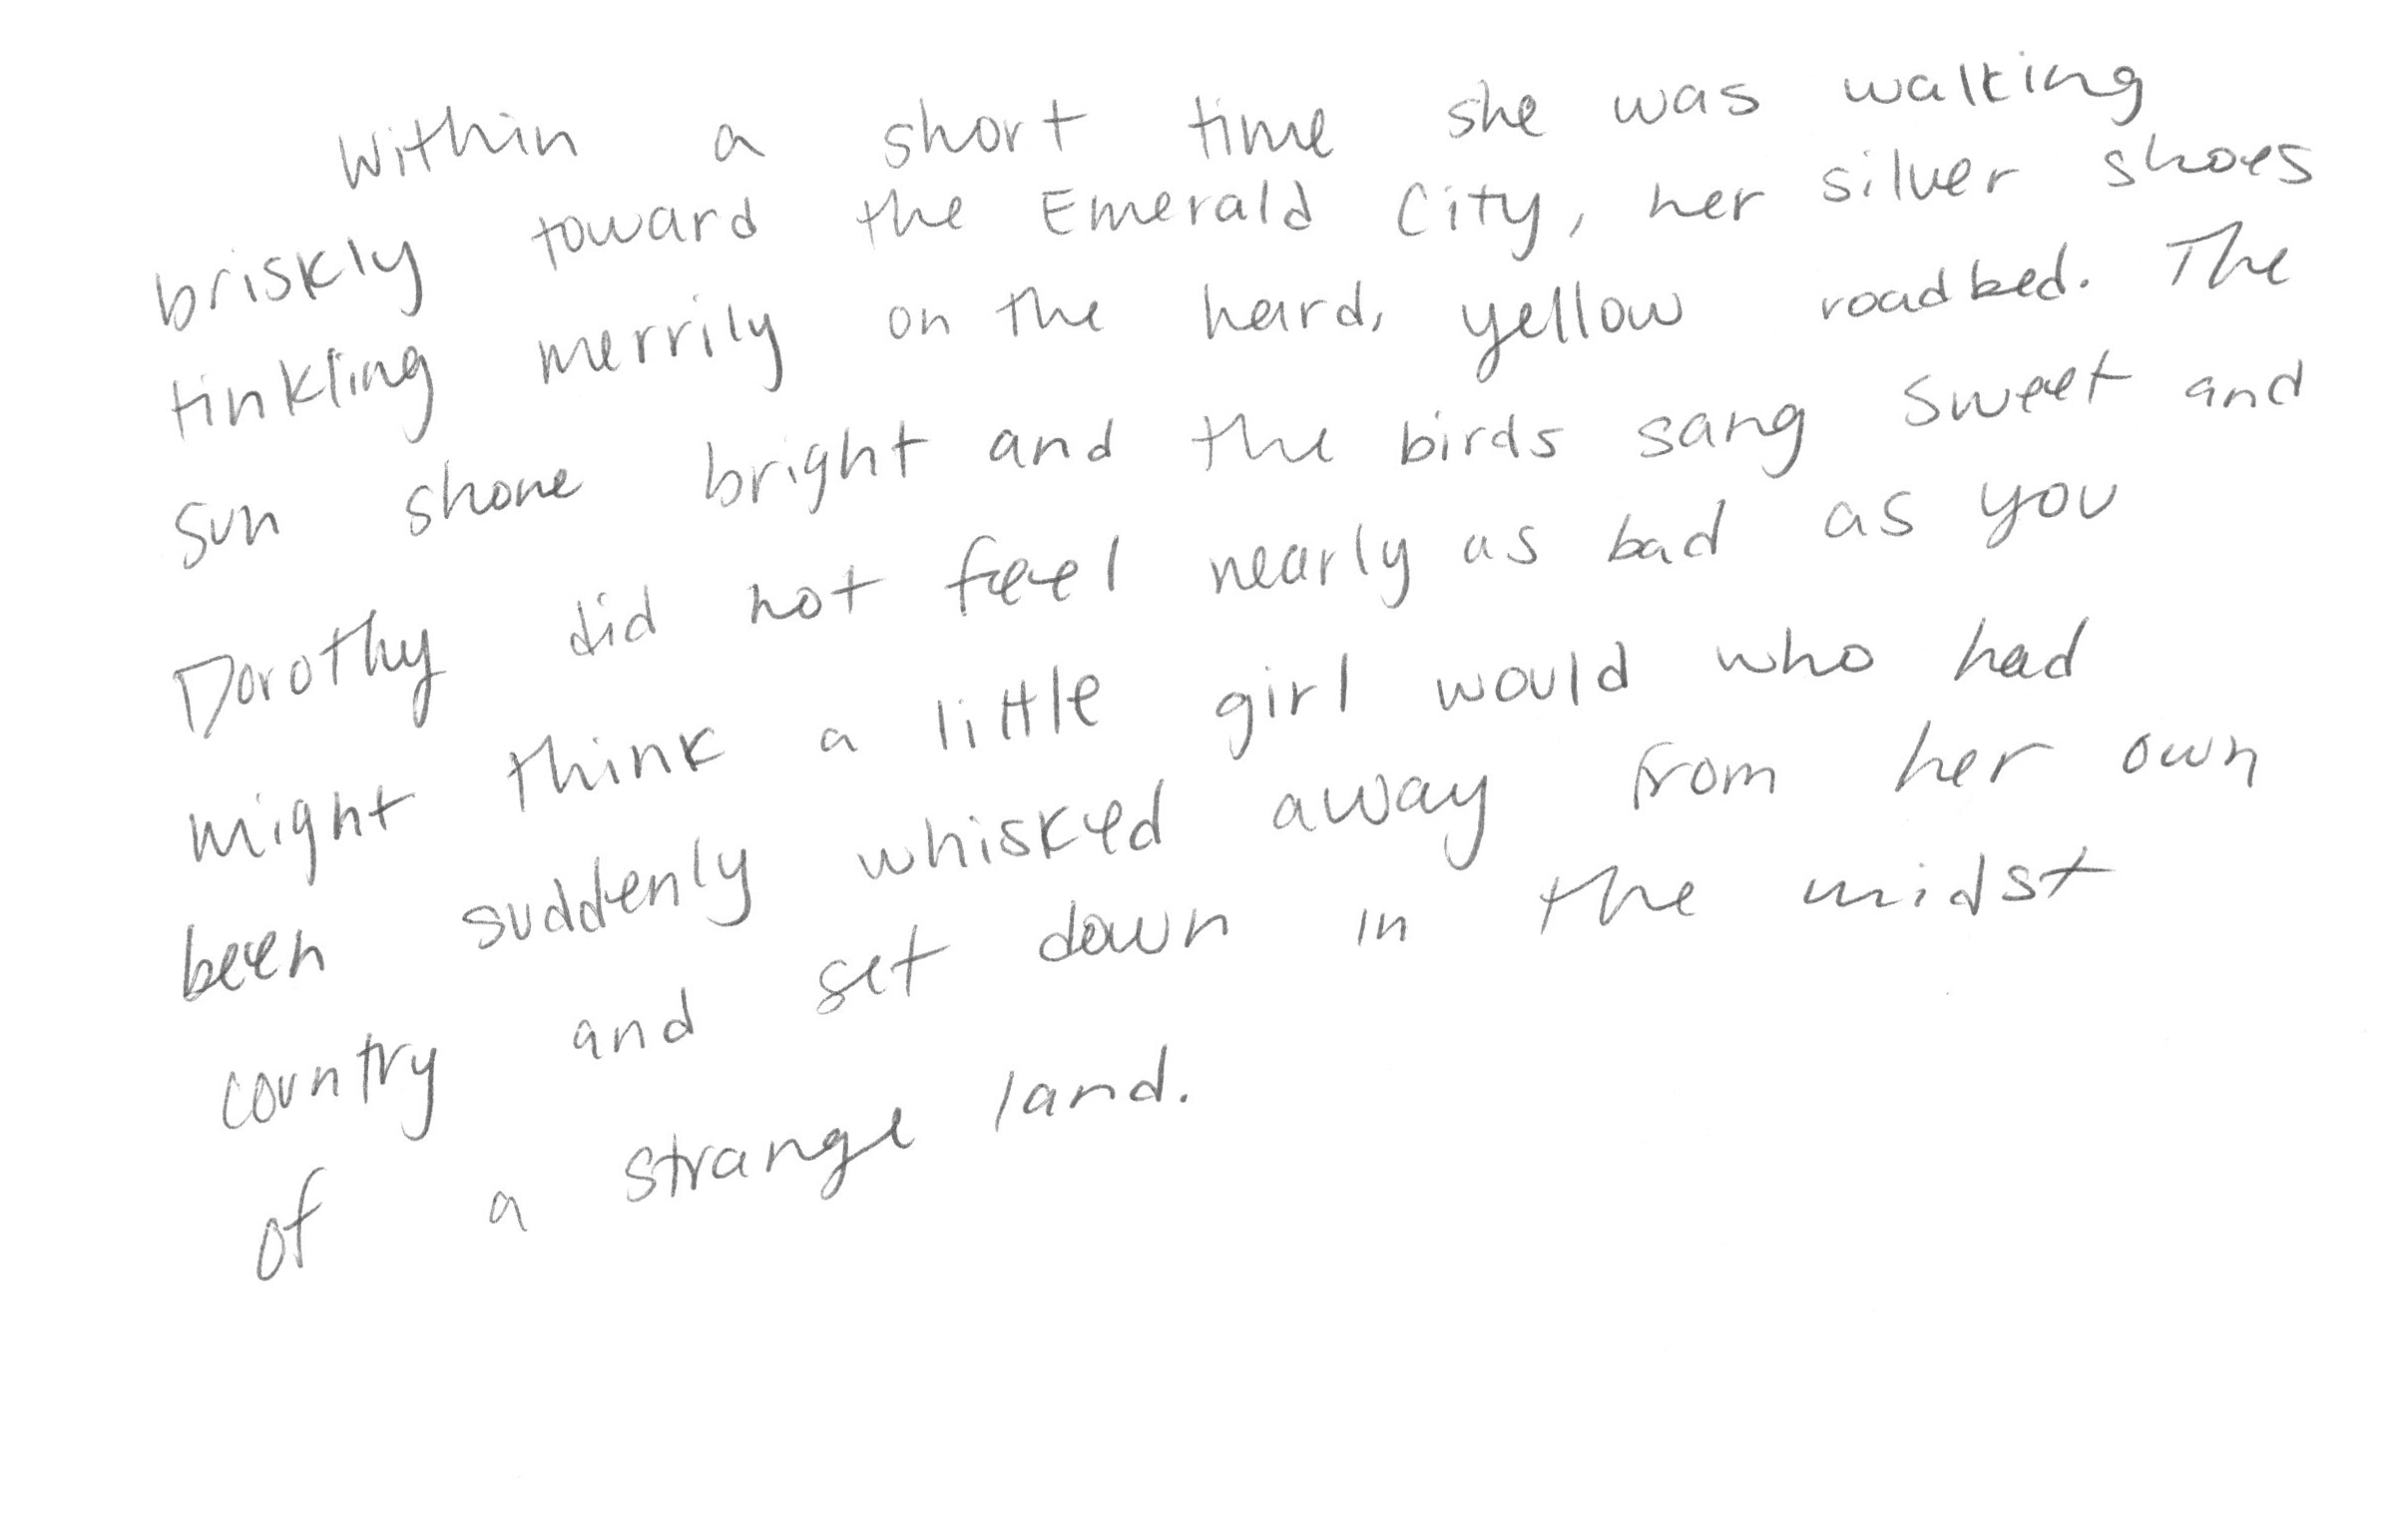 Within a short time she was walking
briskly toward the Emerald City, her silver shoes
tinkling merrily on the hard, yellow roadbed. The
sun shone bright and the birds sang sweet and
Dorothy did not feel nearly as bad as you
might think a little girl would who had
been suddenly whisked away from her own
country and set down in the midst
of a strange land.